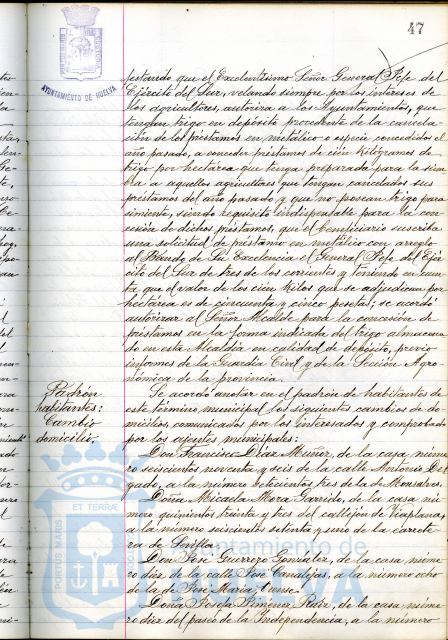 47
AYUNTAMIENTO DE HUELVA
festando que el Excelentísimo Señor General Jefe del
Ejército del Sur, velando siempre por los intereses de
los agricultores, autoriza a los Ayuntamientos, que
tengan trigo en depósito procedente de la cancela-
ción de los préstamos en metálico o especie concedidos el
año pasado, a conceder préstamos de cien kilógramos de
trigo por hectárea que tenga preparada para la siem
bra a aquellos agricultores que tengan cancelados sus
préstamos del año pasado y que no posean trigo para
simiente, siendo requisito indispensable para la con
cesión de dichos préstamos, que el beneficiario suscriba
una solicitud de préstamo en metálico con arreglo
al Bando de Su Excelencia el General Jefe del Ejér
cito del Sur de tres de los corrientes y teniendo en cuen
ta que el valor de los cien kilos que se adjudican por
hectárea es de cincuenta y cinco pesetas; se acordó
autorizar al Señor Alcalde para la concesión de
préstamos en la forma indicada del trigo almacena
do en esta Alcaldía en calidad de depósito, previo
informes de la Guardia Civil y de la Sección Agro
nómica de la provincia.
Padrón
habitantes:
Cambio
domicilio.
Se acordó anotar en el padrón de habitantes de
este término municipal los siguientes cambios de do
micilios comunicados por los interesados y comprobado
por los agentes municipales:
Don Francisco Díaz Muñoz, de la casa, núme
ro seiscientos noventa y seis de la calle Antonio Del
gado, a la número setecientos tres de la de Monsalve.
Doña Micaela Mora Garrido, de la casa nú
mero quinientos treinta y tres del callejón de Viaplana,
a la número seiscientos setenta y uno de la carrete
ra de Sevilla.
Don José Guerrero González, de la casa, núme
ro diez de la calle José Canalejas, a la número ocho
de la de José María
Doña Josefa Jiménez Ruiz, de la casa, núme
ro diez del paseo de la Independencia, a la número
PORTUS MARIS
ET TERRAE
Ayuntamiento de
HUELVA